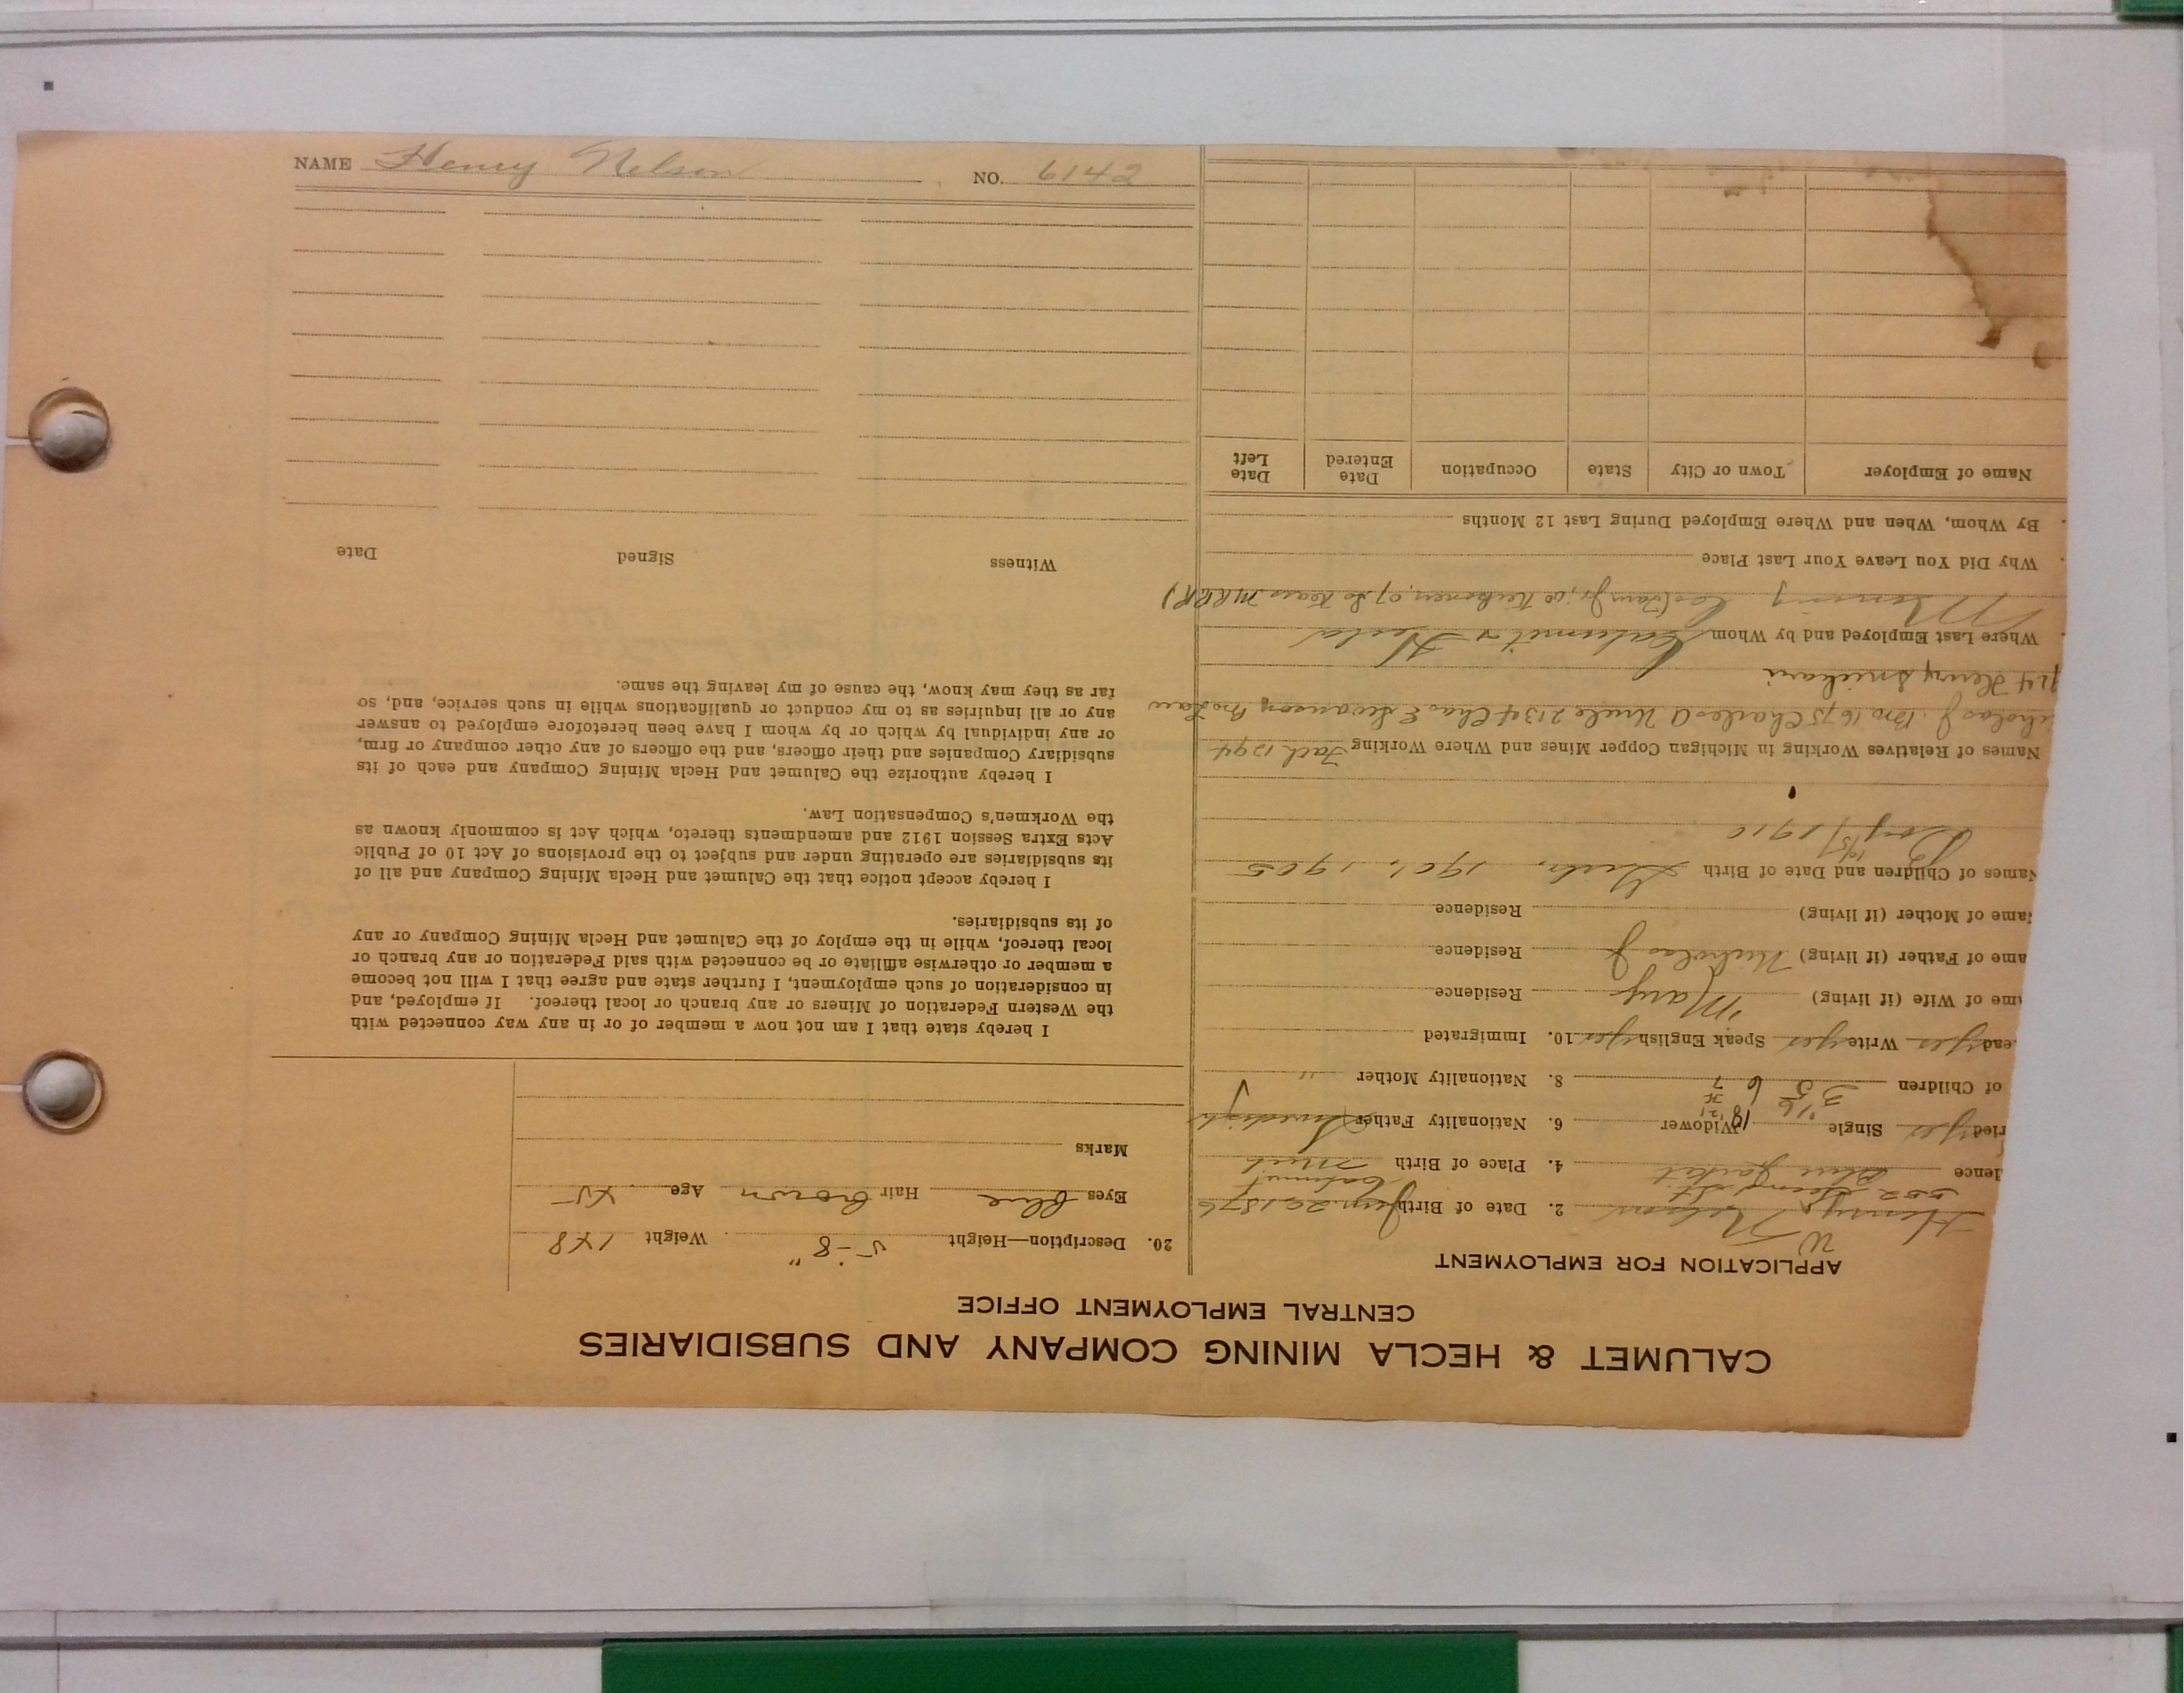 CALUMET & HECLA MINING COMPANY AND SUBSIDIARIES
CENTRAL EMPLOYMENT OFFICE
APPLICATION FOR EMPLOYMENT
W
Henry Nelson 2. Date of Birth 29 1876
552 St Calumet
dence Blue Jacket 4. Place of Birth Mich
ried yes Single Widower 6. Nationality Father Swedish
of Children 3 5 6 7 8. Nationality Mother "
ead yes Write yes Speak English yes 10. Immigrated
me of Wife (if living) Mary Residence
ame of Father (if living) Nicholas J Residence
ame of Mother (if living) Residence
Names of Children and Date of Birth 1905
1910
Names of Relatives Working in Michigan Copper Mines and Where Working Fath 1294
icholas J. Bro 1675 Charles A Uncle 2134 Chas E Swanson Bro Law
914 Henry
Where Last Employed and by Whom Calumet & Hecla
Mining Co
Why Did You Leave Your Last Place
By Whom, When and Where Employed During Last 12 Months
Name of Employer Town or City State Occupation Date Entered Date Left
20. Description—Height 5-8" Weight 148
Eyes Blue Hair Brown Age 45
Marks
I hereby state that I am not now a member of or in any way connected with
the Western Federation of Miners or any branch or local thereof. If employed, and
in consideration of such employment, I further state and agree that I will not become
a member or otherwise affiliate or be connected with said Federation or any branch or
local thereof, while in the employ of the Calumet and Hecla Mining Company or any
of its subsidiaries.
I hereby accept notice that the Calumet and Hecla Mining Company and all of
its subsidiaries are operating under and subject to the provisions of Act 10 of Public
Acts Extra Session 1912 and amendments thereto, which Act is commonly known as
the Workmen's Compensation Law.
I hereby authorize the Calumet and Hecla Mining Company and each of its
subsidiary Companies and their officers, and the officers of any other company or firm,
or any individual by which or by whom I have been heretofore employed to answer
any or all inquiries as to my conduct or qualifications while in such service, and, so
far as they may know, the cause of my leaving the same.
Witness Signed Date
NAME Henry Nelson NO. 6142